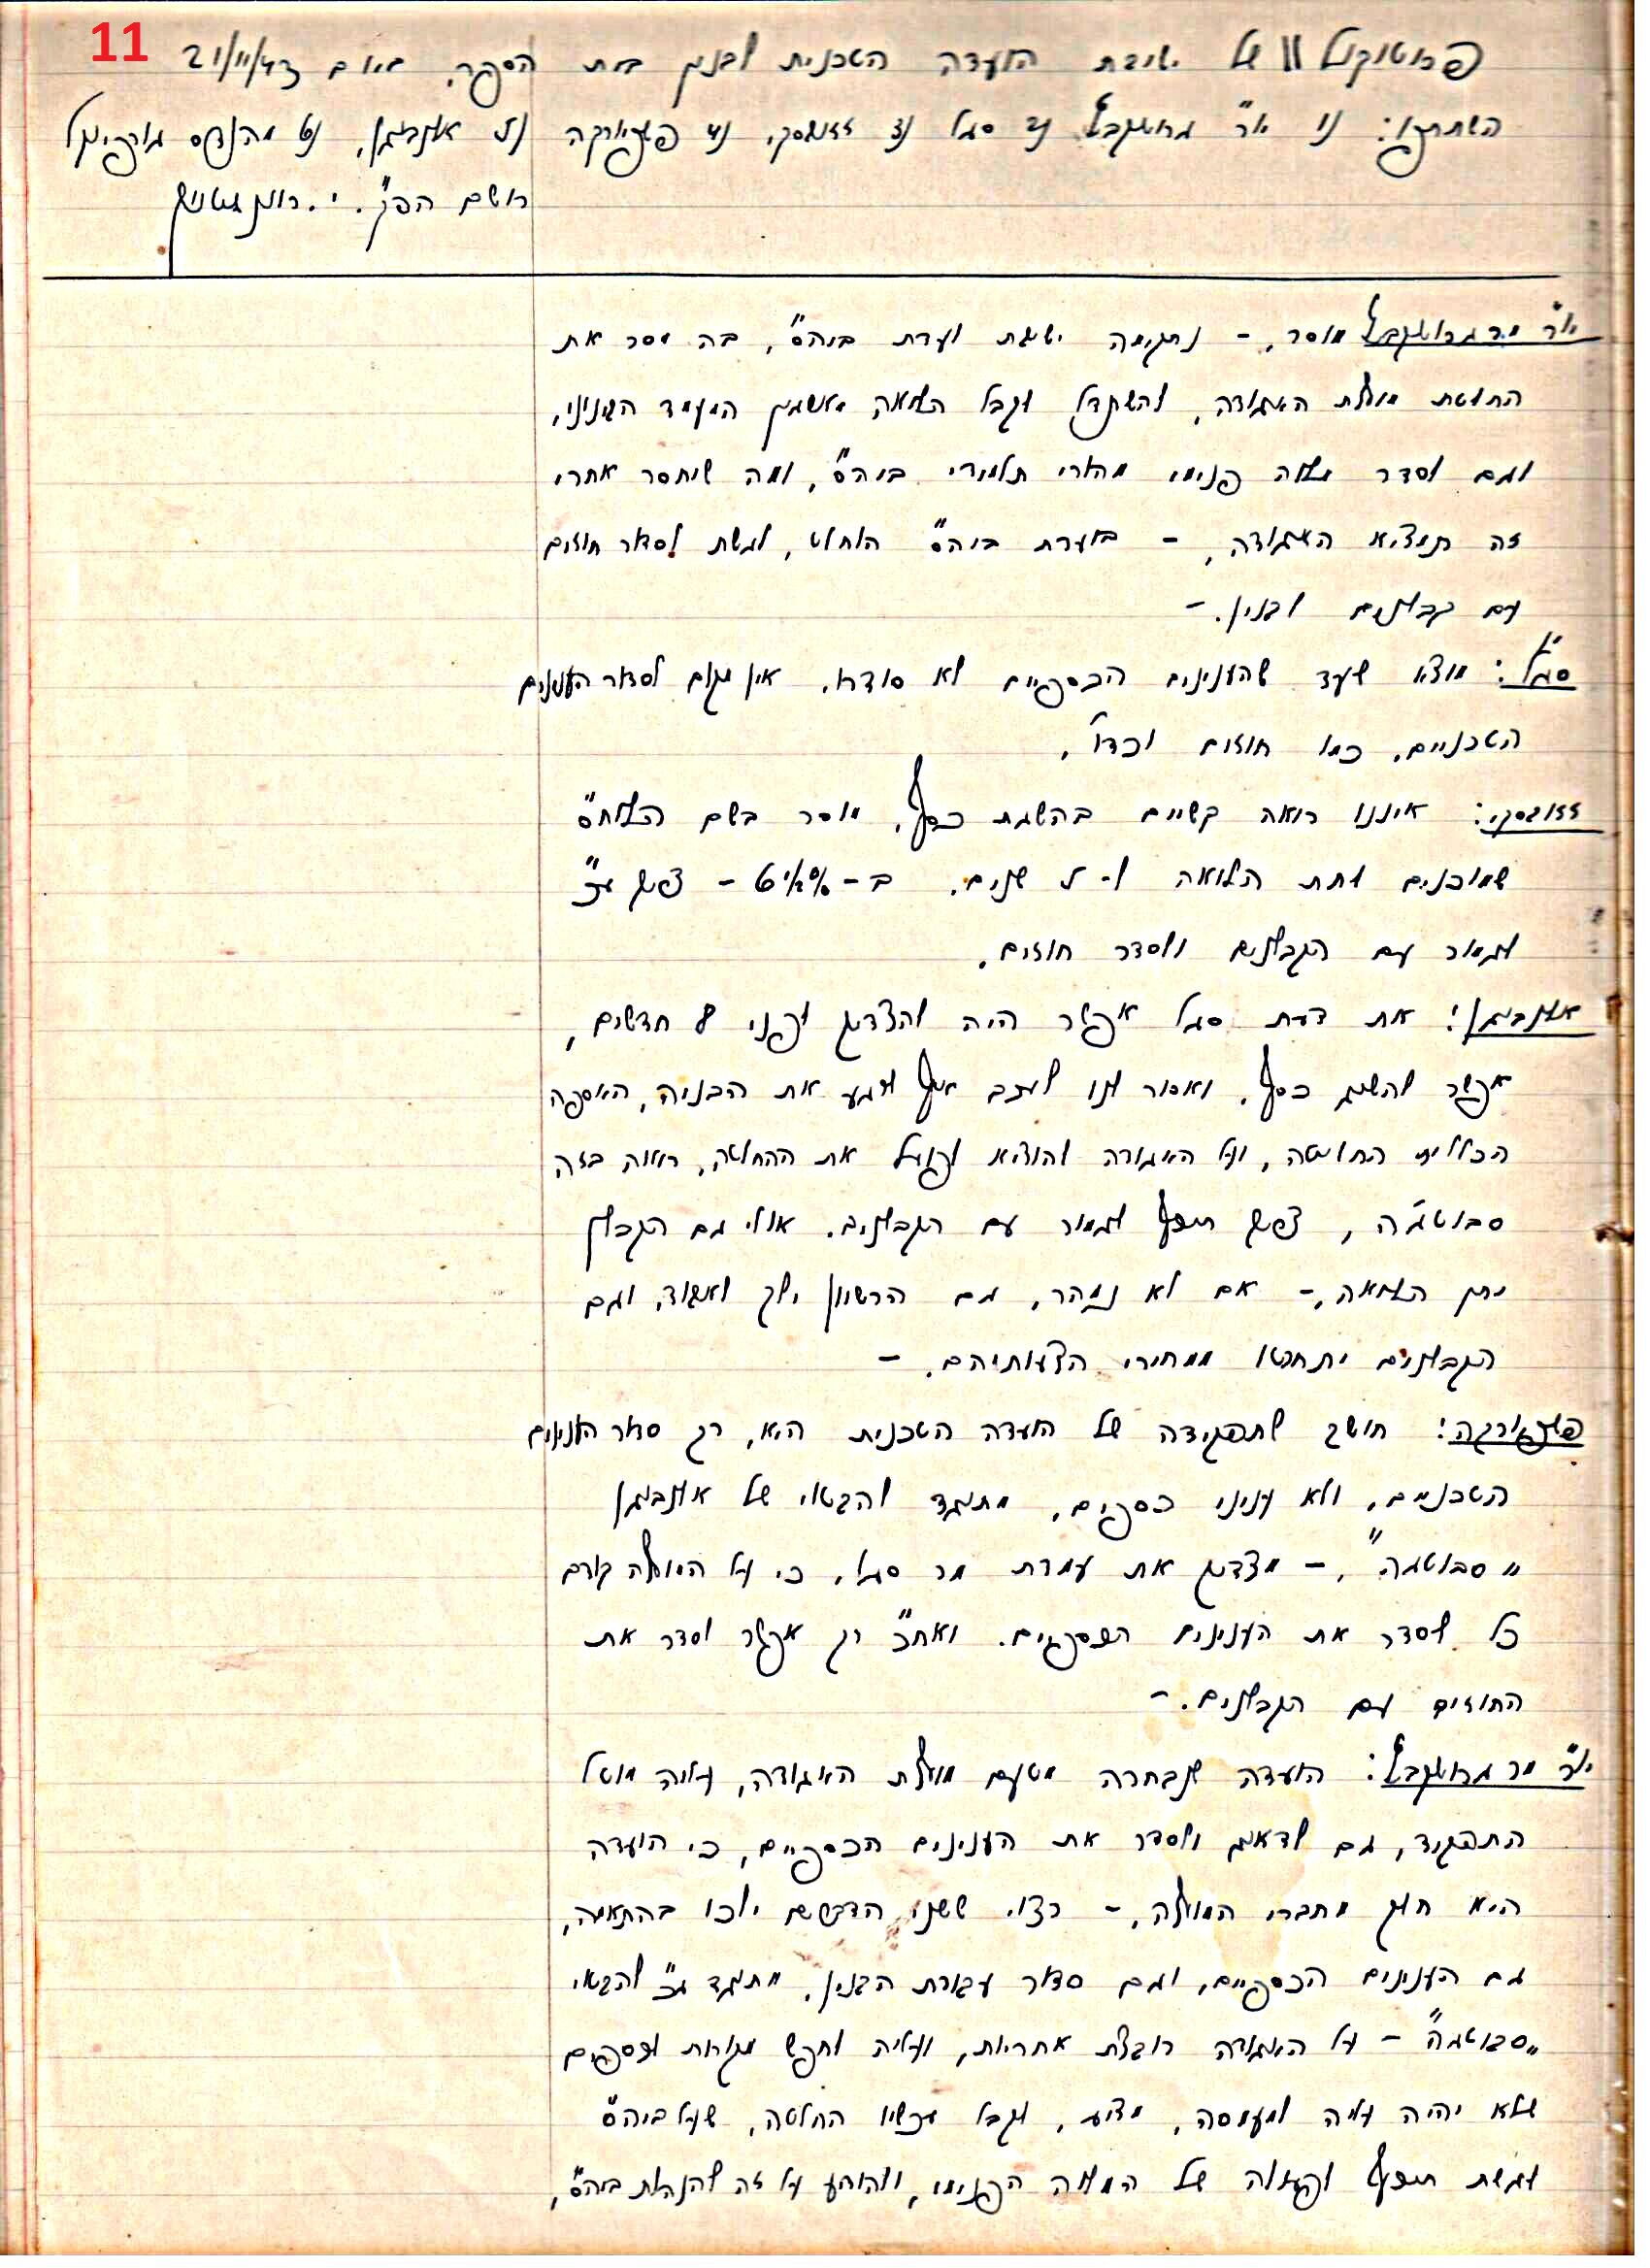 11
פרוטוקול 11 של ישיבת הועדה הטכנית לבנין בית הספר, מיום 21/11/43
השתתפו: ה' יו"ר ה' סגל ה' ה' ה' ה' מהנדס
רושם הפר'. י.
יו"ר מר מוסר, - נתקימה ישיבת ועדת ביה"ס, בה מסר את
החלטת מועצת האגודה, להשתדל לקבל הלואה מאשראי המעמד הבינוני,
וגם לסדר מלוה פנימי מהורי תלמידי ביה"ס, ומה שיחסר אחרי
זה תמציא האגודה, - בועדת ביה"ס הוחלט, לגשת לסדור חוזים
עם קבלנים לבנין. -
סגל: מוצא שעד שהענינים הכספיים לא סודרו, אין מקום לסדור הענינים
הטכניים, כמו חוזים וכדו',
איננו רואה קשיים בהשגת כסף, מוסר בשם
שמוכנים לתת הלואה ל- 5 שנים. ב - 6 1/2% - צריך ע"כ
לגמור עם הקבלנים ולסדר חוזים.
את דעת סגל אפשר היה להצדיק לפני 8 חדשים,
אפשר להשיג כסף, ואסור לנו לעכב אף לרגע את הבניה, האספה
הכללית החליטה, ועל האגודה להוציא לפועל את ההחלטה, רואה בזה
סבוטג'ה, צריך תיכף לגמור עם הקבלנים. אולי גם הקבלן
יתן הלואה, - אם לא נמהר, גם הרשיון ילך לאבוד, וגם
הקבלנים יתחרטו ממחירי הצעותיהם. -
חושב שתפקידה של הועדה הטכנית היא, רק סדור הענינים
הטכניים, ולא עניני כספים, מתנגד להבטוי של
"סבוטג'ה", - מצדיק את עמדת מר סגל, כי על המועצה קודם
כל לסדר את הענינים הכספיים. ואח"כ רק אפשר לסדר את
החוזים עם הקבלנים. -
יו"ר מר הועדה שנבחרה מטעם מועצת האגודה, עליה מוטל
התפקיד, גם לדאוג ולסדר את הענינים הכספיים, כי הועדה
היא חלק מחברי המועצה, - רצוי ששני הדברים ילכו בהתאמה,
גם הענינים הכספיים, וגם סדור עבודת הבנין, מתנגד ג"כ להבטוי
"סבוטג'ה" - על האגודה רובצת אחריות, ועליה לחפש מקורות כספיים
שלא יהיה עליה למעמסה, מציע, לקבל עכשיו החלטה, שועד ביה"ס
לגשת תיכף לפעולה של המלוה הפנימי, ולהודיע על זה להנהלת ביה"ס,